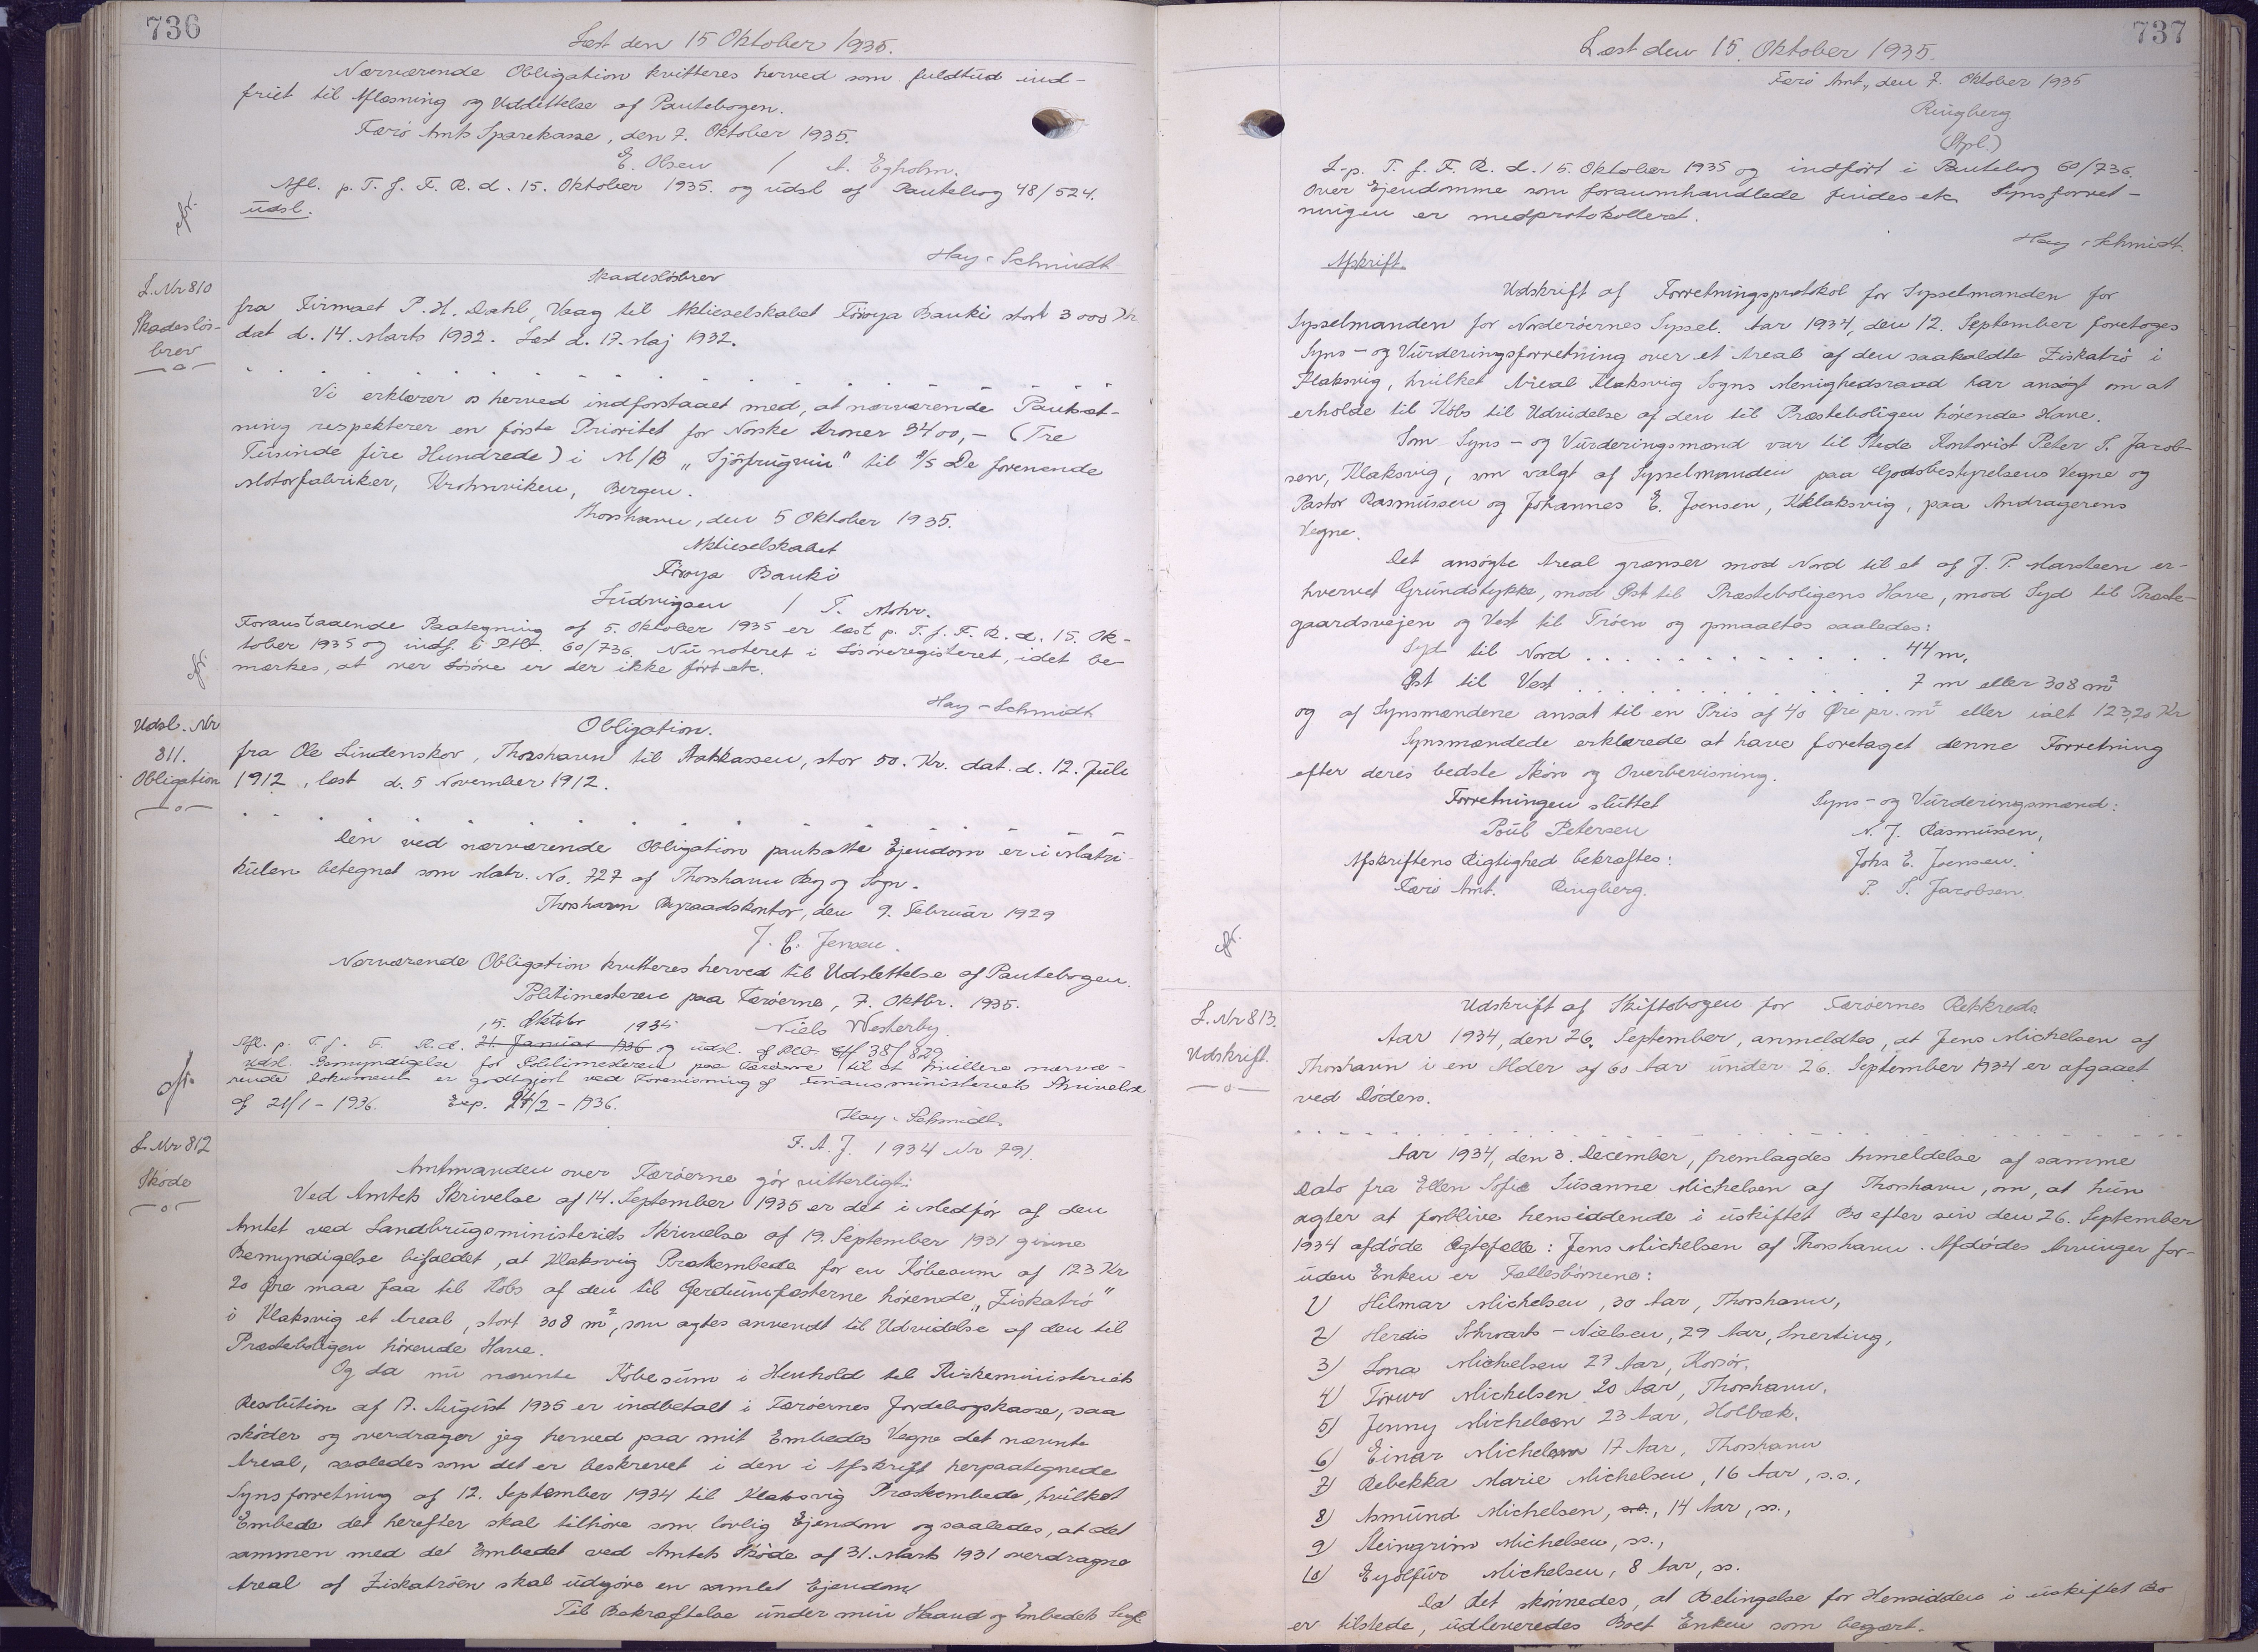 736
Læst den 15 Oktober 1935.
Nærværende Obligation kvitteres herved som fuldtud ind-
friet til Aflæsning og Udslettelse af Pantebogen.
Færø Amts Sparekasse, den 7. Oktober 1935.
E. Olsen / A. Egholm.
Afl. p. T. f. F. R. d. 15. Oktober 1935. og udsl af Pantebog 48/524.
udsl.
Hay-Schmidt
L. Nr 810
Skadesløs-
brev
Skadesløsbrev
fra Firmaet P. H. Dahl, Vaag til Aktieselskabet Föroya Banki stort 3000 Kr
dat d. 14. Marts 1932. Læst d. 17. Maj 1932.
Vi erklærer os herved indforstaaet med, at nærværende Pantsæt-
ning respekterer en første Prioritet for Norske Kroner 3400,- (Tre
Tusinde fire Hundrede) i M/B "Sjófrúgvin" til A/S De forenende
Motorfabriker, Krohnviken, Bergen.
Thorshavn, den 5 Oktober 1935.
Aktieselskabet
Föroya Banki
Ludvigsen / T. Mohr.
Foranstaaende Paategning af 5. Oktober 1935 er læst p. T. f. F. R. d. 15. Ok-
tober 1935 og indf. i Ptb. 60/736. Nu noteret i Løsøreregisteret, idet be-
mærkes, at over Løsøre er der ikke ført etc.
Hay-Schmidt
Udsl. Nr
811.
Obligation
Obligation.
fra Ole Lindenskov, Thorshavn til Statskassen, stor 50. Kr. dat. d. 12. Juli
1912, læst d. 5 November 1912.
Den ved nærværende Obligation pantsatte Ejendom er i Matri-
kulen betegnet som Matr. No. 727 af Thorshavn By og Sogn.
Thorshavn Byraadskontor, den 9. Februar 1929
J. C. Jensen.
Nærværende Obligation kvitteres herved til Udslettelse af Pantebogen.
Politimesteren paa Færøerne, 7. Oktbr. 1935.
15. Oktober 1935 Niels Westerby.
Afl. p. T. f. F. R. d. 21. Januar 1936 og udsl. af 38/829
udsl. Bemyndigelse for Politimesteren paa Færøerne til at kvittere nærvæ-
rende Dokument er godtgjort ved Forevisning af Finansministeriets Skrivelse
af 21/1-1936. Exp. 24/2-1936.
Hay-Schmidt.
L. Nr 812
Skøde
F. A. J. 1934 Nr 791.
Amtmanden over Færøerne gør vitterligt:
Ved Amtets Skrivelse af 14. September 1935 er det i Medfør af den
Amtet ved Landbrugsministeriets Skrivelse af 19. September 1931 givne
Bemyndigelse bifaldet, at Klaksvig Præstembede for en Købesum af 123 Kr
20 Øre maa faa til Købs af den til Gerdumfæsterne hørende "Ziskatrø"
i Klaksvig et Areal, stort 308 m², som agtes anvendt til Udvidelse af den til
Præsteboligen hørende Have.
Og da nu nævnte Købesum i Henhold til Kirkeministeriets
Resolution af 17. August 1935 er indbetalt i Færøernes Jordebogskasse, saa
skøder og overdrager jeg herved paa mit Embedes Vegne det nævnte
Areal, saaledes som det er beskrevet i den i Afskrift herpaategnede
Synsforretning af 12. September 1934 til Klaksvig Præstembede, hvilket
Embede det herefter skal tilhøre som lovlig Ejendom og saaledes, at det
sammen med det Embedet ved Amtets Skøde af 31. Marts 1931 overdragne
Areal af Ziskatrøen skal udgøre en samlet Ejendom
Til Bekræftelse under min Haand og Embedets Segl.
737
Læst den 15. Oktober 1935.
Færø Amt., den 7. Oktober 1935
Ringberg
(Stpl.)
L. p. T. f. F. R. d. 15. Oktober 1935 og indført i Pantebog 60/736.
Over Ejendomme som foranmhandlede findes etc. Synsforret-
ningen er medprotokolleret.
Hay-Schmidt.
Afskrift.
Udskrift af Forretningsprotokol for Sysselmanden for
Sysselmanden for Norderøernes Syssel. Aar 1934, den 12. September foretoges
Syns- og Vurderingsforretning over et Areal af den saakaldte Ziskatrø i
Klaksvig, hvilket Areal Klaksvig Sogns Menighedsraad har ansøgt om at
erholde til Købs til Udvidelse af den til Præsteboligen hørende Have.
Som Syns- og Vurderingsmænd var til Stede Kontorist Peter S. Jacob-
sen, Klaksvig, som valgt af Sysselmanden paa Godsbestyrelsens Vegne og
Pastor Rasmussen og Johannes E. Joensen, Klaksvig, paa Andragerens
Vegne.
Det ansøgte Areal grænser mod Nord til et af J. P. Marsteen er-
hvervet Grundstykke, mod Øst til Præsteboligens Have, mod Syd til Præste-
gaardsvejen og Vest til Trøen og opmaaltes saaledes:
Syd til Nord . . . . . . . . . . . . . 44 m,
Øst til Vest . . . . . . . . . . . . . 7 m eller 308 m²
og af Synsmændene ansat til en Pris af 40 Øre pr. m² eller ialt 123,20 Kr
Synsmændede erklærede at have foretaget denne Forretning
efter deres bedste Skøn og Overbevisning.
Forretningen sluttet Syns- og Vurderingsmænd:
Poul Petersen N. J. Rasmussen,
Afskriftens Rigtighed bekræftes: Johs E. Joensen.
Færø Amt. Ringberg. P. S. Jacobsen.
L. Nr 813.
Udskrift.
Udskrift af Skiftebogen for Færøernes Retskreds
Aar 1934, den 26. September, anmeldtes, at Jens Michelsen af
Thorshavn i en Alder af 60 Aar under 26. September 1934 er afgaaet
ved Døden.
Aar 1934, den 3. December, fremlagdes Anmeldelse af samme
Dato fra Ellen Sofie Susanne Michelsen af Thorshavn, om, at hun
agter at forblive hensiddende i uskiftet Bo efter sin den 26. September
1934 afdøde Ægtefælle: Jens Michelsen af Thorshavn. Afdødes Arvinger for-
uden Enken er Fællesbørnene:
1) Hilmar Michelsen, 30 Aar, Thorshavn,
2) Herdis Schwartz-Nielsen, 29 Aar, Snerting,
3) Lona Michelsen 27 Aar, Korsør,
4) Tórur Michelsen 20 Aar, Thorshavn,
5) Jenny Michelsen 23 Aar, Holbæk,
6) Einar Michelsen 17 Aar, Thorshavn
7) Rebekka Marie Michelsen, 16 Aar, s.s.,
8) Asmund Michelsen, s.s., 14 Aar, ss.,
9) Steingrim Michelsen, ss.,
10) Eyolfur Michelsen, 8 Aar, ss.
Da det skønnedes, at Betingelse for Hensidden i uskiftet Bo
er tilstede, udleveredes Boet Enken som begært.